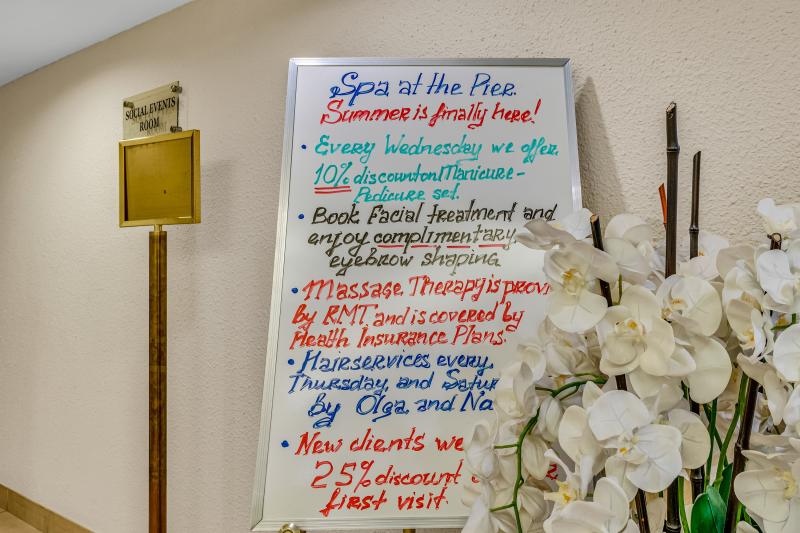 SOCIAL EVENTS
ROOM
Spa at the Pier.
Summer is finally here!
• Every Wednesday we offer
10% discount on Manicure-
Pedicure set.
• Book Facial treatment and
enjoy complimentary
eyebrow shaping
• Massage Therapy is provi
by RMT and is covered by
Health Insurance Plans.
• Hair services every
Thursday and Satur
by Olga and Na
• New clients we
25% discount
first visit.